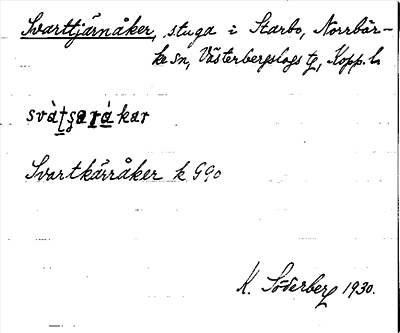 Svarttjärnåker, stuga i Starbo, Norrbär-
ke sn, Västerbergslags tg, Kopp. l.
svàtʂarákar
Svartkärråker k G90
K. Söderberg 1930.